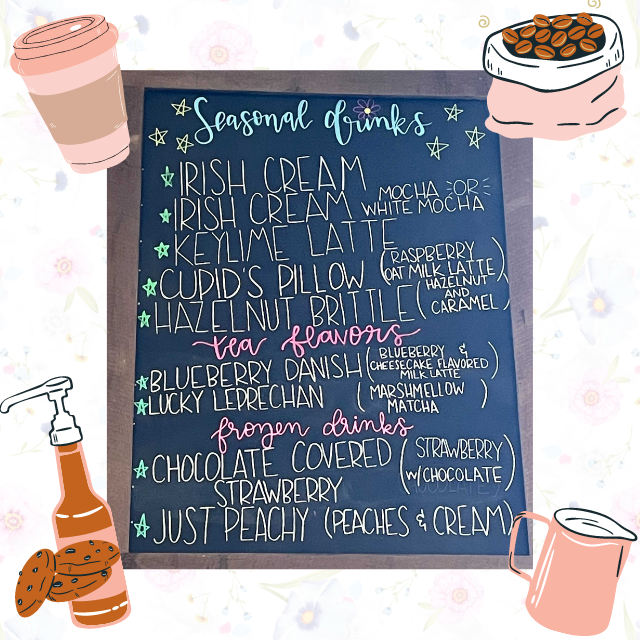 Seasonal drinks
IRISH CREAM
IRISH CREAM MOCHA OR WHITE MOCHA
KEYLIME LATTE
CUPID'S PILLOW (RASPBERRY OAT MILK LATTE)
HAZELNUT BRITTLE (HAZELNUT AND CARAMEL)
tea flavors
BLUEBERRY DANISH (BLUEBERRY & CHEESECAKE FLAVORED MILK LATTE)
LUCKY LEPRECHAN (MARSHMELLOW MATCHA)
frozen drinks
CHOCOLATE COVERED STRAWBERRY (STRAWBERRY W/CHOCOLATE)
JUST PEACHY (PEACHES & CREAM)